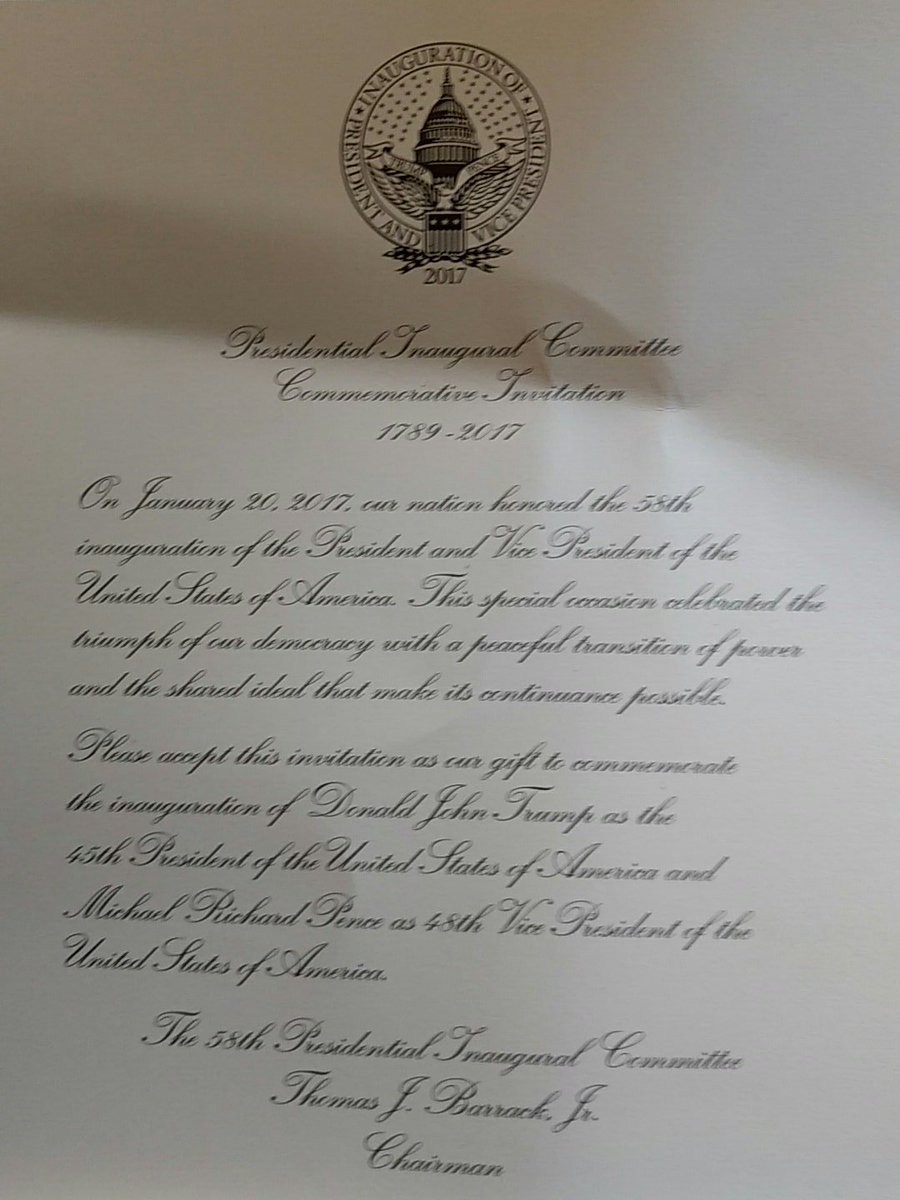 INAUGURATION OF
PRESIDENT AND VICE PRESIDENT
TRUMP PENCE
2017
Presidential Inaugural Committee
Commemorative Invitation
1789-2017
On January 20, 2017, our nation honored the 58th
inauguration of the President and Vice President of the
United States of America. This special occasion celebrated the
triumph of our democracy with a peaceful transition of power
and the shared ideal that make its continuance possible.
Please accept this invitation as our gift to commemorate
the inauguration of Donald John Trump as the
45th President of the United States of America and
Michael Richard Pence as 48th Vice President of the
United States of America.
The 58th Presidential Inaugural Committee
Thomas J. Barrack, Jr.
Chairman